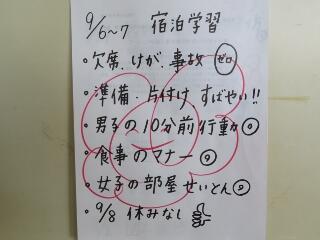 9/6~7 宿泊学習
・欠席.けが.事故 ゼロ
・準備・片付け すばやい!!
・男子の10分前行動◎
・食事のマナー◎
・女子の部屋せいとん◎
・9/8 休みなし